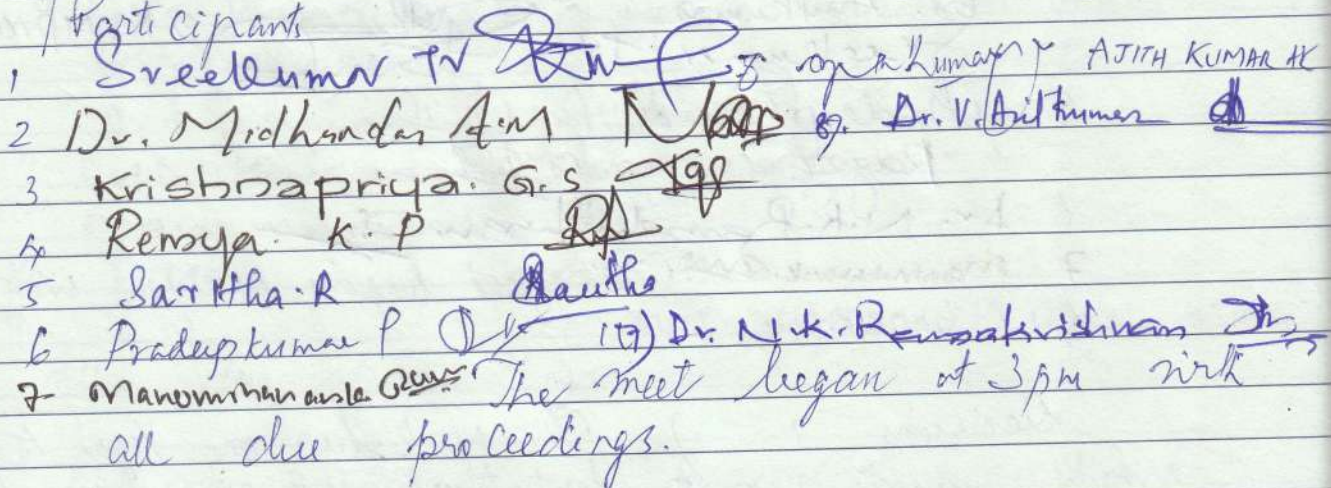 Participants
1 Sreekumar TV 8 AJITH KUMAR AK
2 Dr. Midhundas A.M 9. Dr. V. Anil Kumar
3 Krishnapriya. G.S
4 Remya. K. P
5 Saritha. R Saritha
6 Pradeepkumar P (17) Dr. N.K. Ramakrishnan
7 The meet began at 3pm with
all due proceedings.